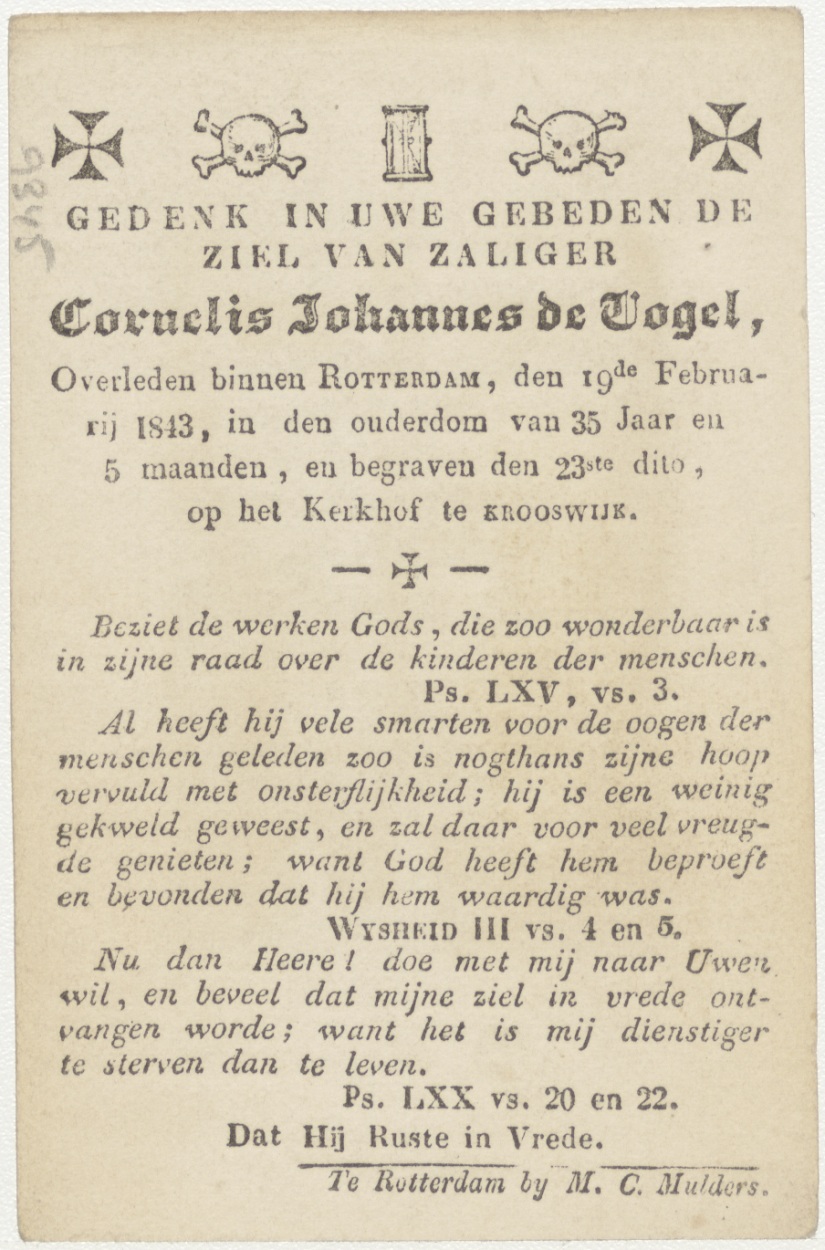 GEDENK IN UWE GEBEDEN DE
ZIEL VAN ZALIGER
Cornelis Johannes de Vogel,
Overleden binnen ROTTERDAM, den 19de Februa-
rij 1843, in den ouderdom van 35 Jaar en
5 maanden, en begraven den 23ste dito,
op het Kerkhof te KROOSWIJK.
Beziet de werken Gods, die zoo wonderbaar is
in zijne raad over de kinderen der menschen.
Ps. LXV, vs. 3.
Al heeft hij vele smarten voor de oogen der
menschen geleden zoo is nogthans zijne hoop
vervuld met onsterflijkheid; hij is een weinig
gekweld geweest, en zal daar voor veel vreug-
de genieten; want God heeft hem beproeft
en bevonden dat hij hem waardig was.
WYSHEID III vs. 4 en 5.
Nu dan Heere! doe met mij naar Uwen
wil, en beveel dat mijne ziel in vrede ont-
vangen worde; want het is mij dienstiger
te sterven dan te leven.
Ps. LXX vs. 20 en 22.
Dat Hij Ruste in Vrede.
Te Rotterdam by M. C. Mulders.